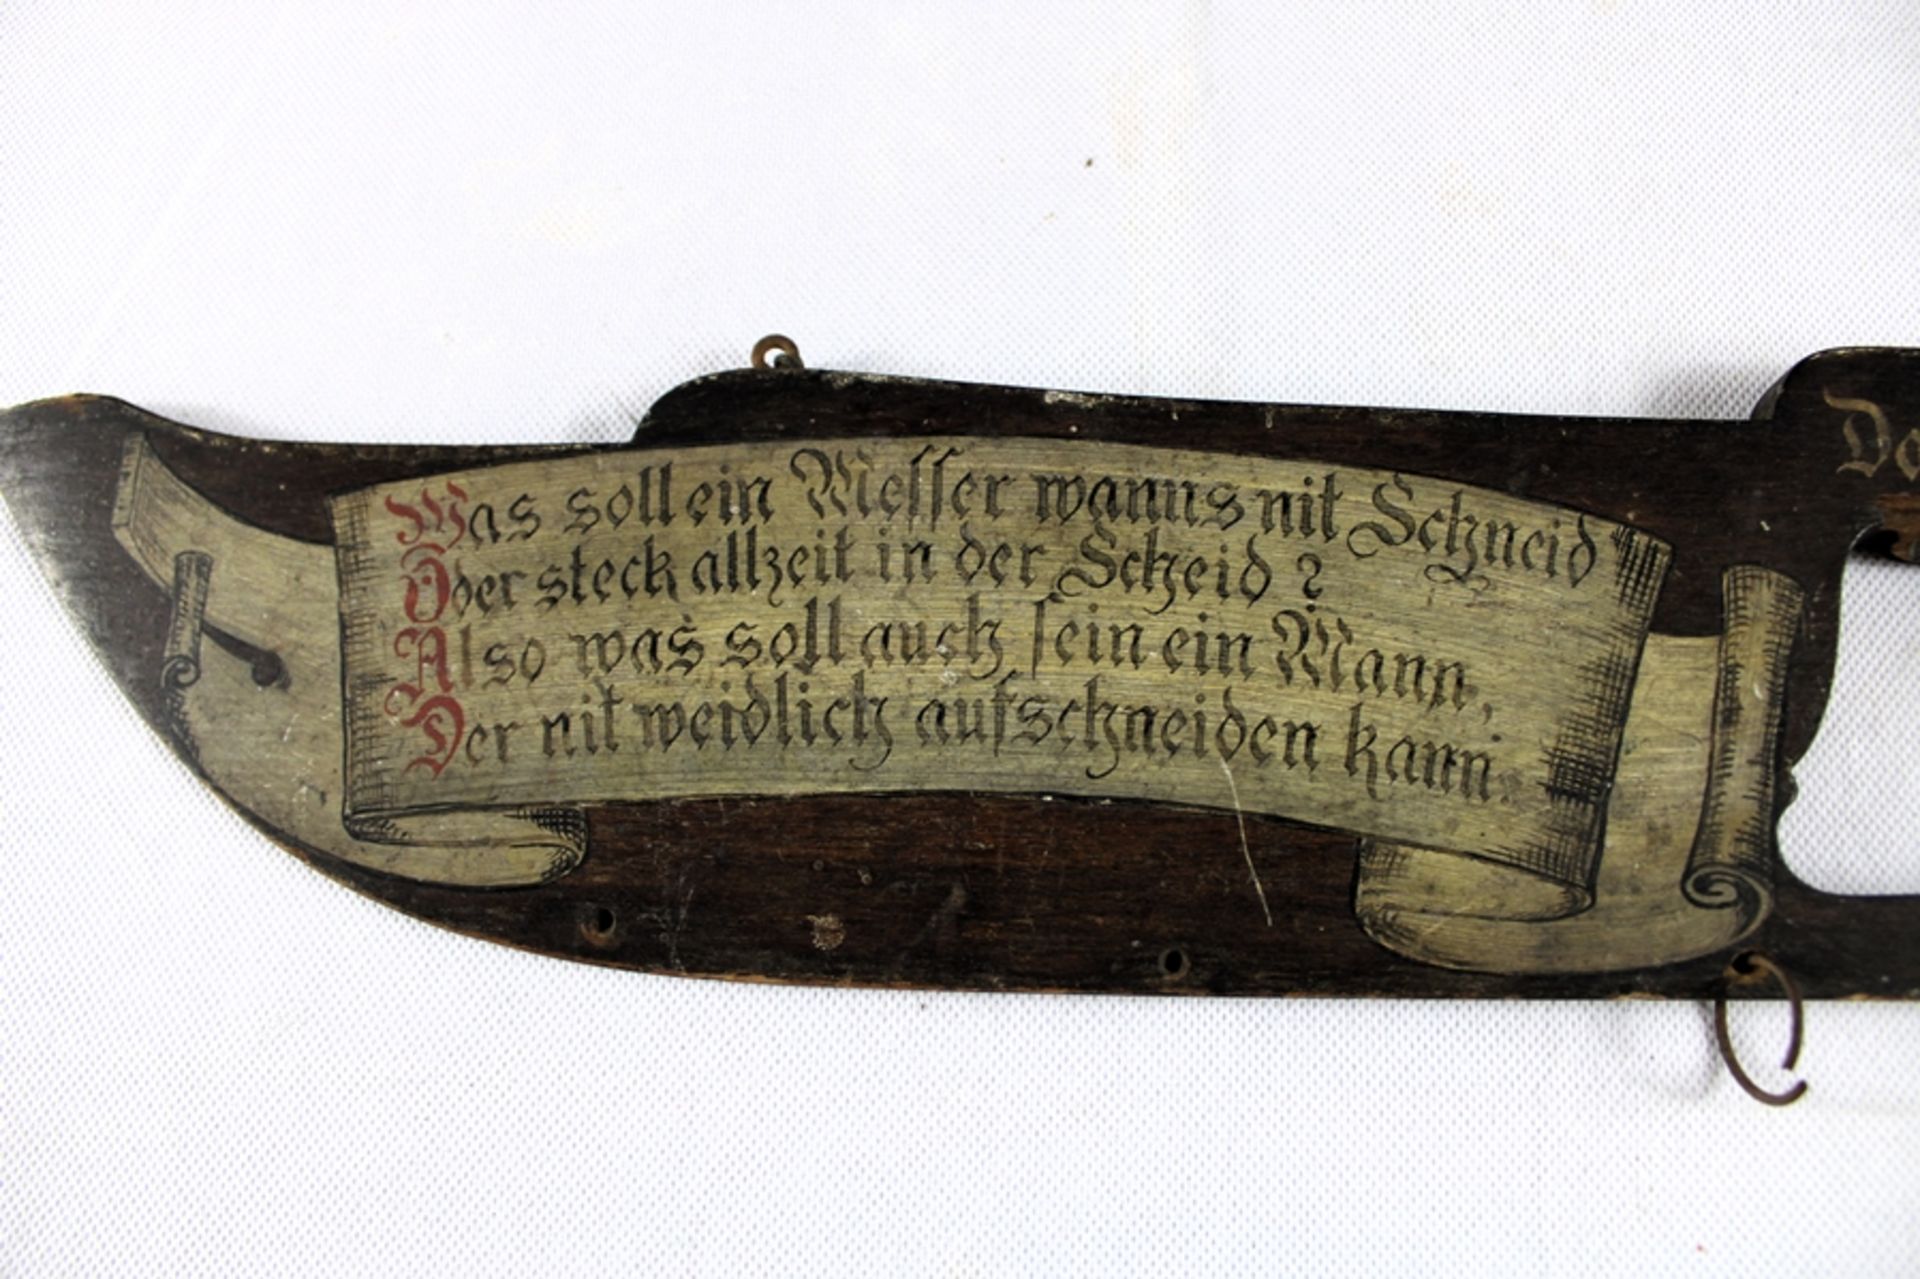 Was soll ein Messer wanns nit Schneid
Oder steck allzeit in der Scheid?
Also was soll auch sein ein Mann,
Der nit weidlich aufschneiden kann.